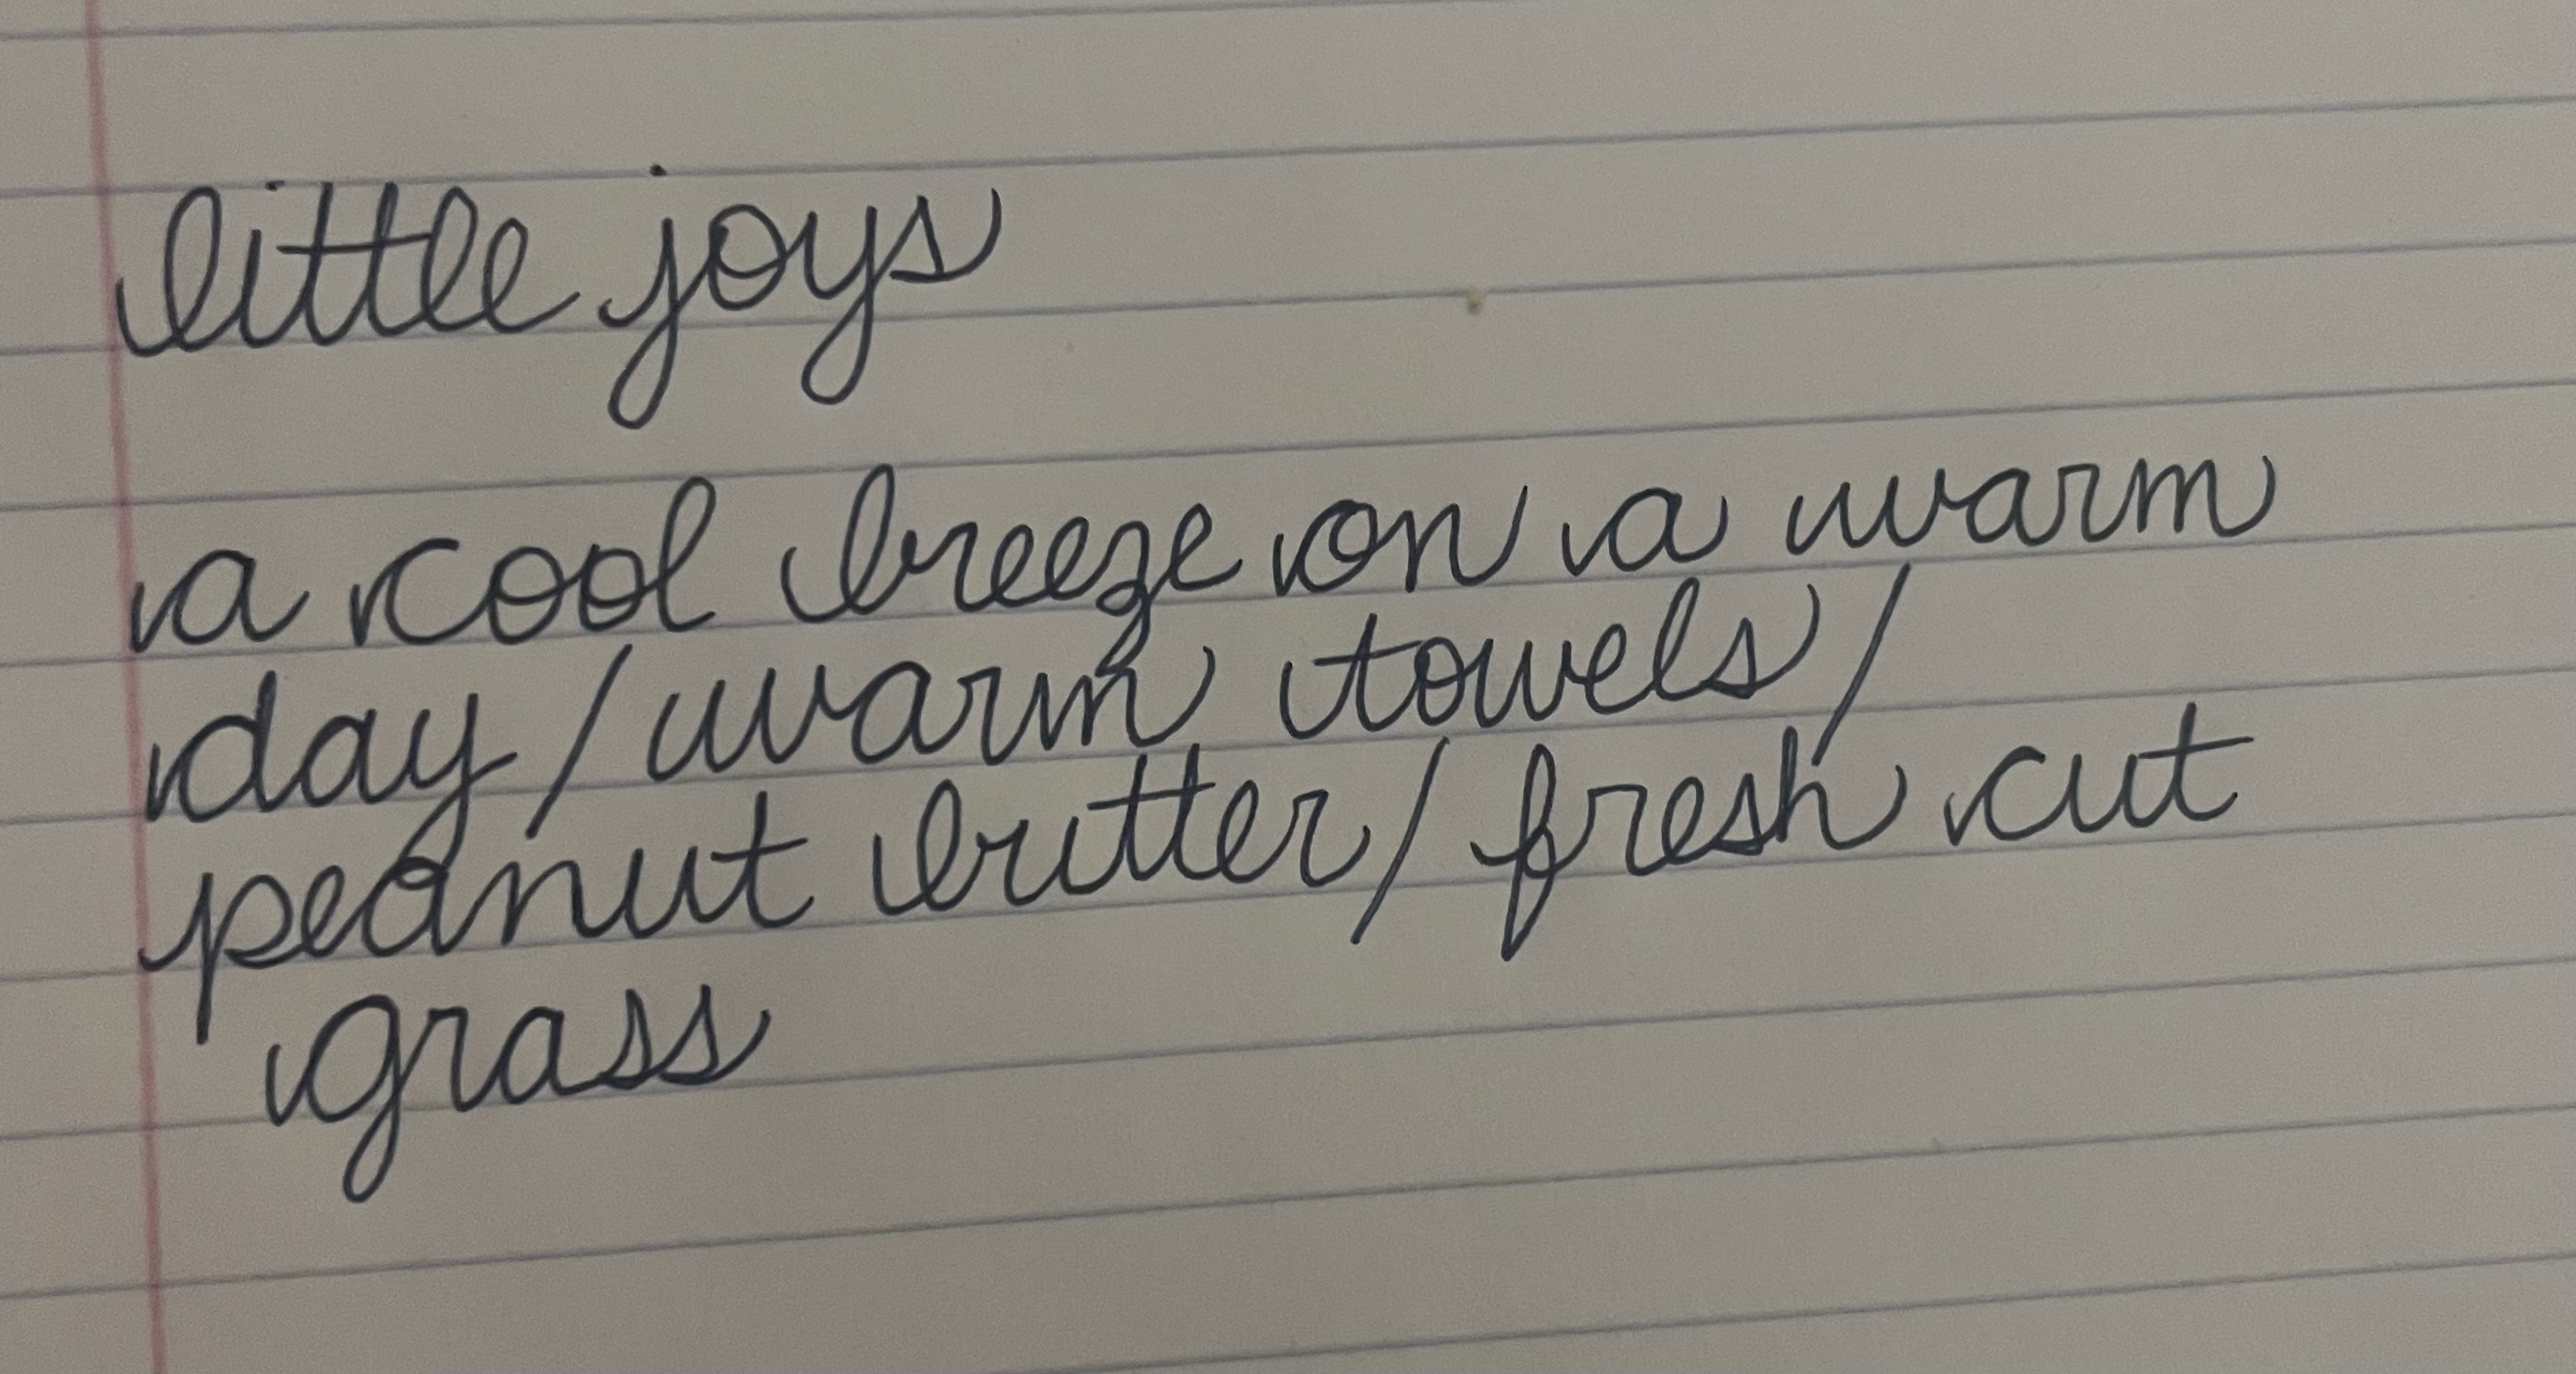 little joys
a cool breeze on a warm
day/warm towels/
peanut butter/fresh cut
grass